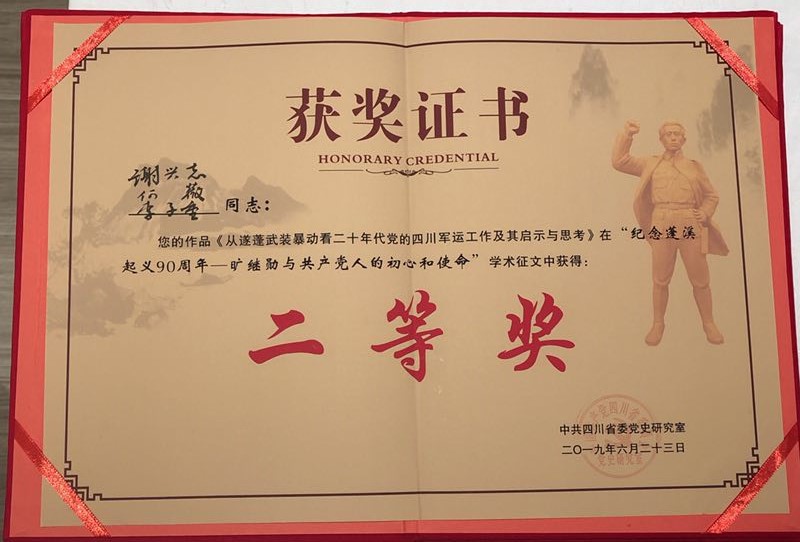 获奖证书
HONORARY CREDENTIAL
谢兴志
何薇
李子重 同志：
您的作品《从遂蓬武装暴动看二十年代党的四川军运工作及其启示与思考》在“纪念蓬溪
起义90周年—旷继勋与共产党人的初心和使命”学术征文中获得：
二等奖
中共四川省委党史研究室
二〇一九年六月二十三日